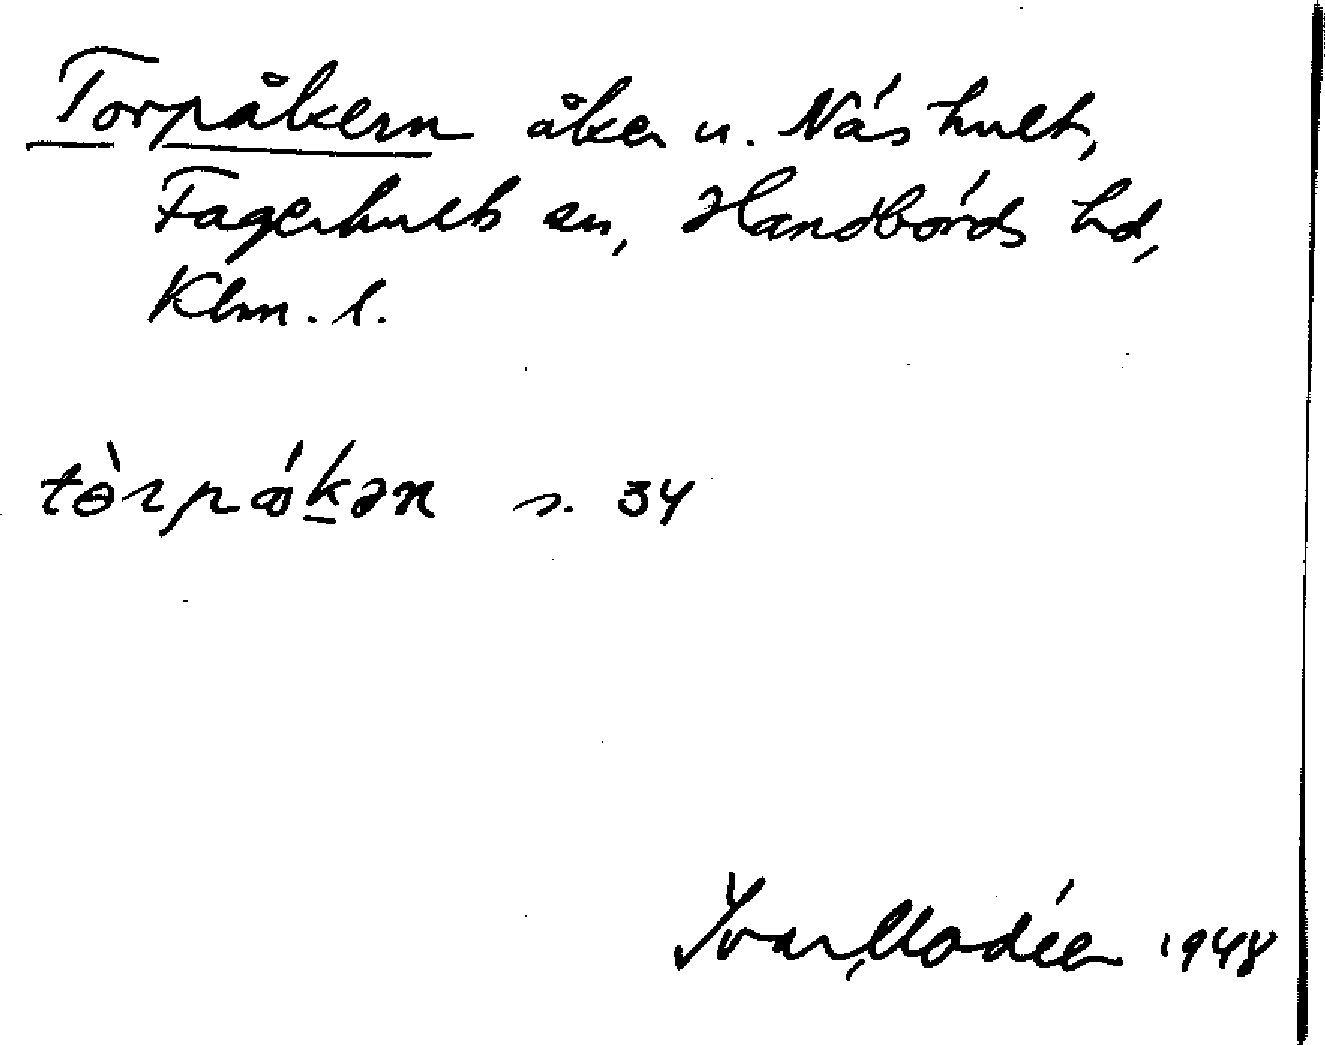 Torpåkern åker u. Näshult,
Fagerhults sn, Handbörds hd,
Klm. l.
s. 34
Ivar Modéer 1948